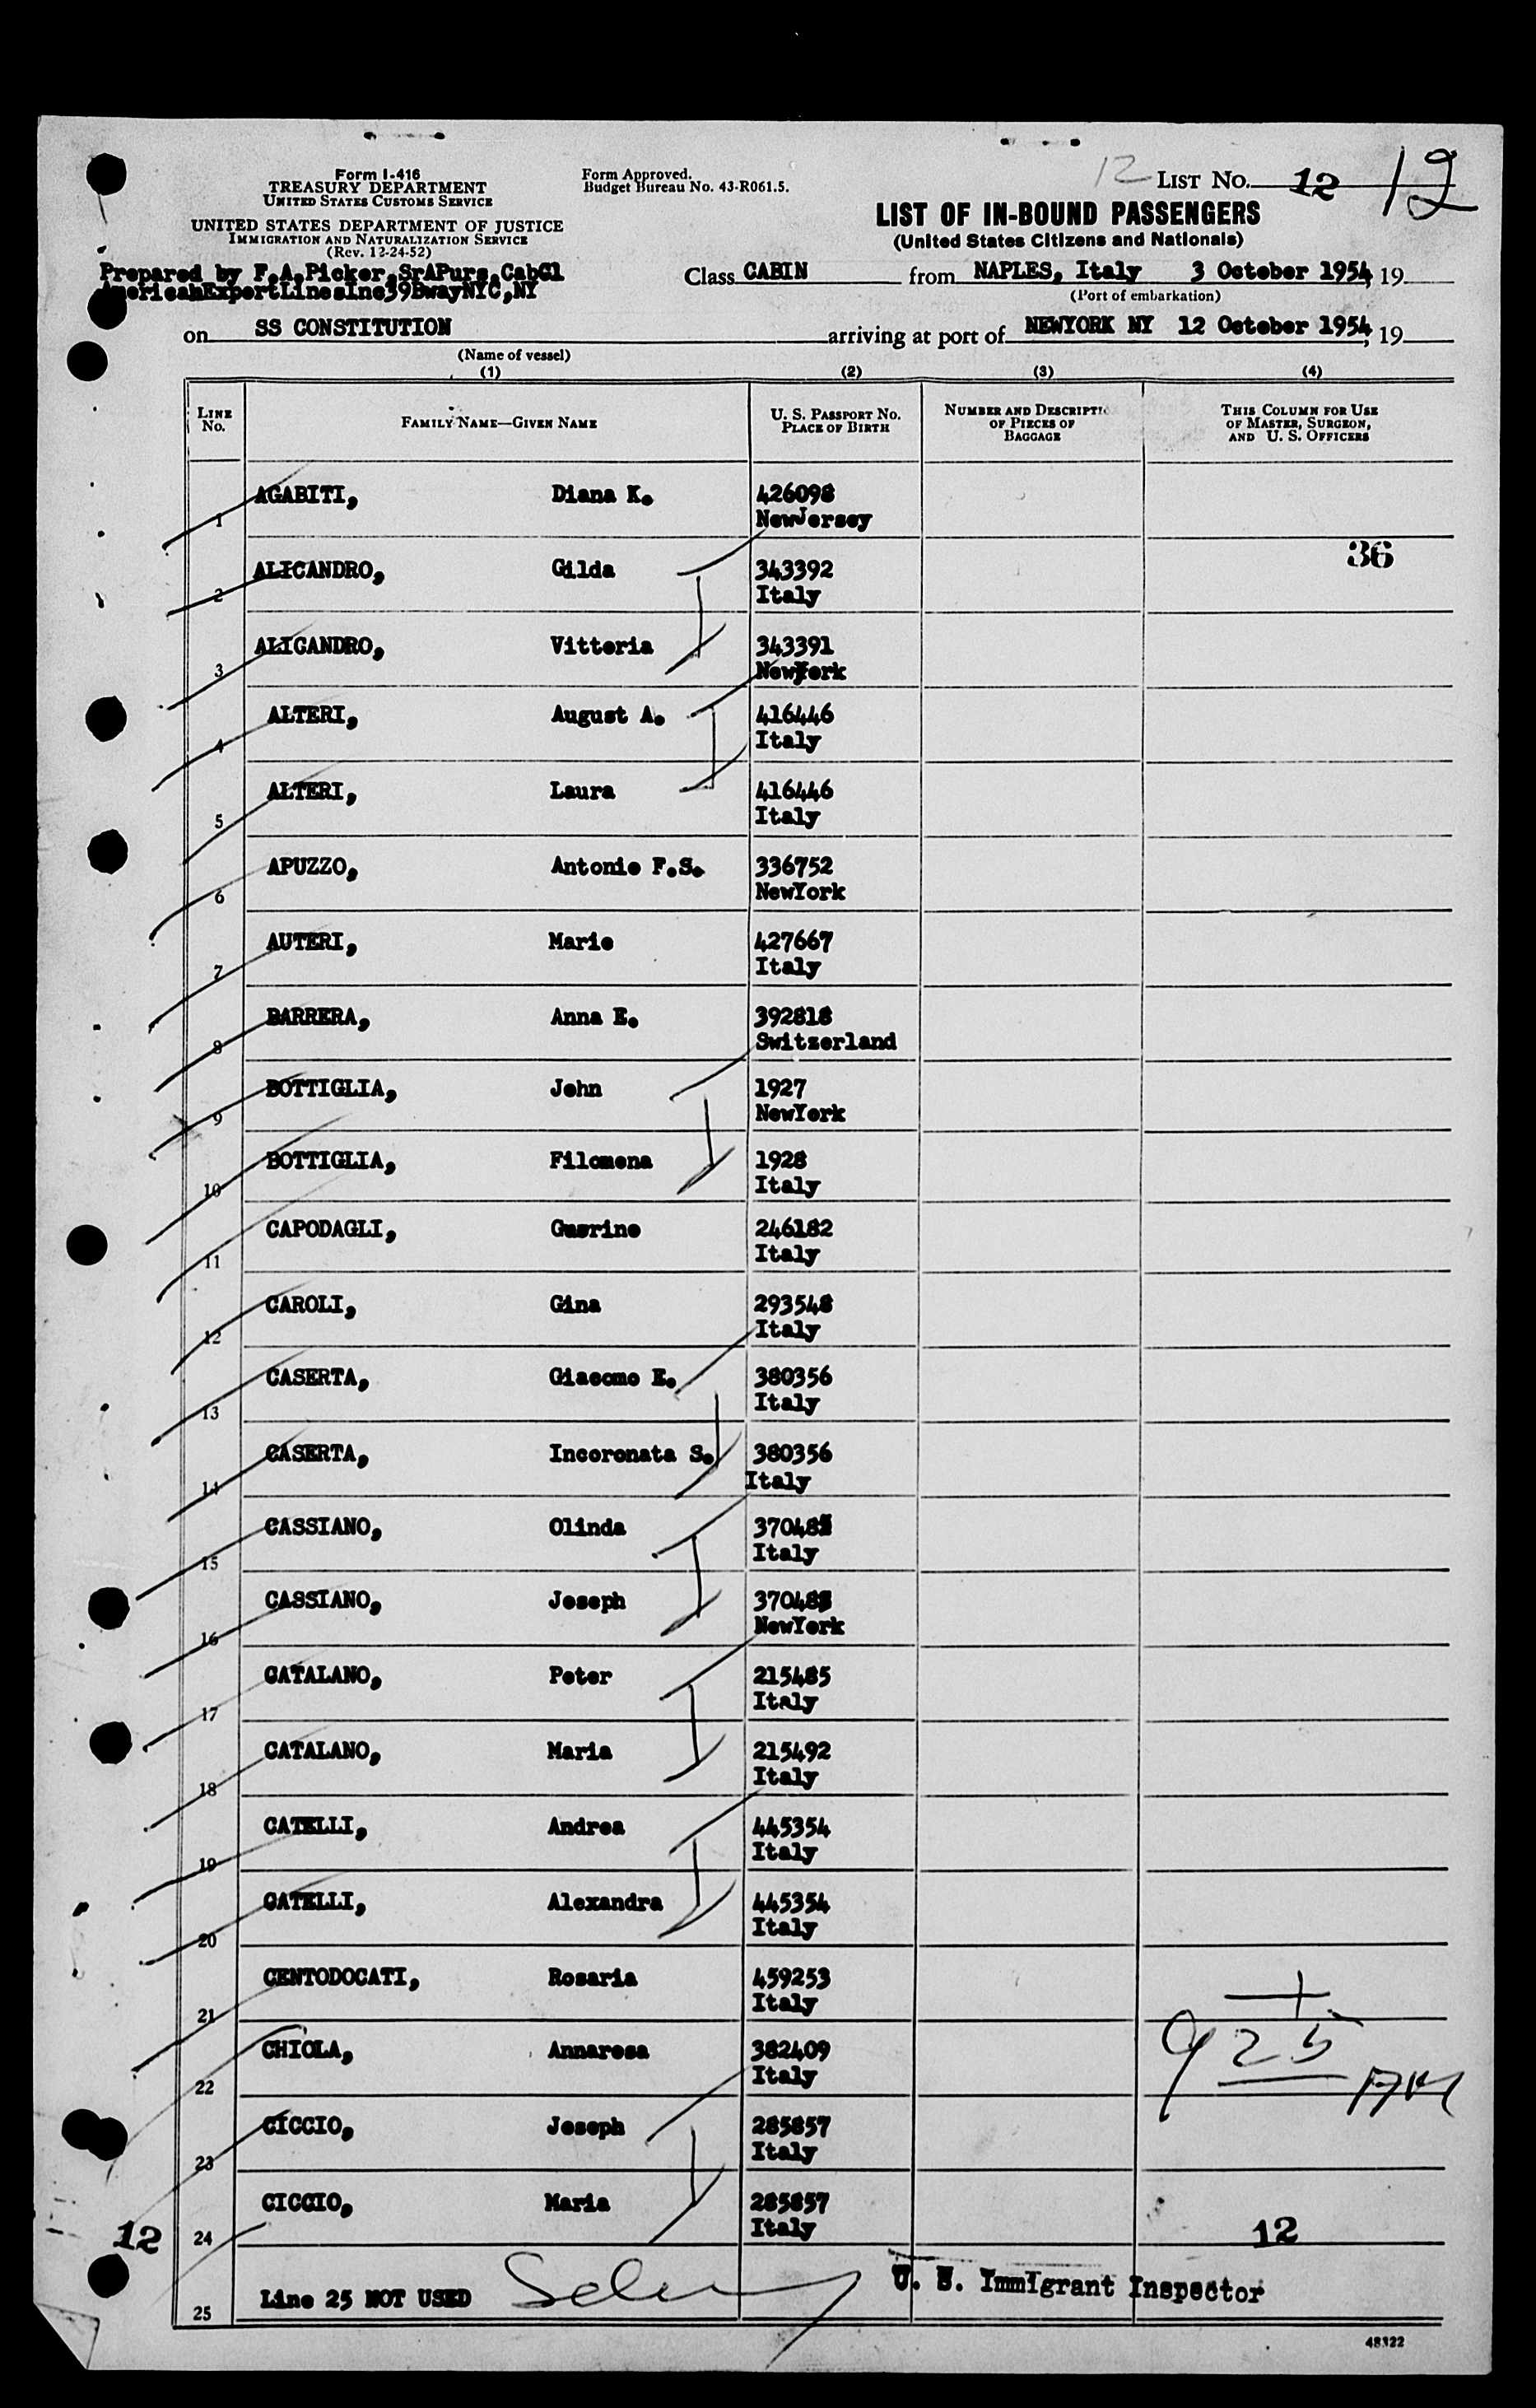 12 LIST No. 12 12
Form I-416
TREASURY DEPARTMENT
UNITED STATES CUSTOMS SERVICE
Form Approved.
Budget Bureau No. 43-R061.5.
UNITED STATES DEPARTMENT OF JUSTICE
IMMIGRATION AND NATURALIZATION SERVICE
(Rev. 12-24-52)
LIST OF IN-BOUND PASSENGERS
(United States Citizens and Nationals)
Prepared by F.A.Picker,SrAPurs,CabCl
AmericanExportLinesInc39BwayNYC,NY
Class CABIN from NAPLES, Italy 3 October 1954, 19
(Port of embarkation)
on SS CONSTITUTION arriving at port of NEWYORK NY 12 October 1954, 19
(Name of vessel)
(1) (2) (3) (4)
LINE No. FAMILY NAME—GIVEN NAME U. S. PASSPORT No. PLACE OF BIRTH NUMBER AND DESCRIPTIO OF PIECES OF BAGGAGE THIS COLUMN FOR USE OF MASTER, SURGEON, AND U. S. OFFICERS
1 AGABITI, Diana K. 426098
NewJersey
36
2 ALICANDRO, Gilda 343392
Italy
3 ALICANDRO, Vittoria 343391
NewYork
4 ALTERI, August A. 416446
Italy
5 ALTERI, Laura 416446
Italy
6 APUZZO, Antonio F.S. 336752
NewYork
7 AUTERI, Mario 427667
Italy
8 BARRERA, Anna E. 392818
Switzerland
9 BOTTIGLIA, John 1927
NewYork
10 BOTTIGLIA, Filomena 1928
Italy
11 CAPODAGLI, Guerino 246182
Italy
12 CAROLI, Gina 293548
Italy
13 CASERTA, Giacomo E. 380356
Italy
14 CASERTA, Incoronata S. 380356
Italy
15 CASSIANO, Olinda
Italy
16 CASSIANO, Joseph
NewYork
17 CATALANO, Peter 215485
Italy
18 CATALANO, Maria 215492
Italy
19 CATELLI, Andrea 445354
Italy
20 CATELLI, Alexandra 445354
Italy
21 CENTODOCATI, Rosaria 459253
Italy
22 CHIOLA, Annarosa 382409
Italy
925 AM
23 CICCIO, Joseph 285857
Italy
24 CICCIO, Maria 285857
Italy
12 12
25 Line 25 NOT USED U. S. Immigrant Inspector
48322